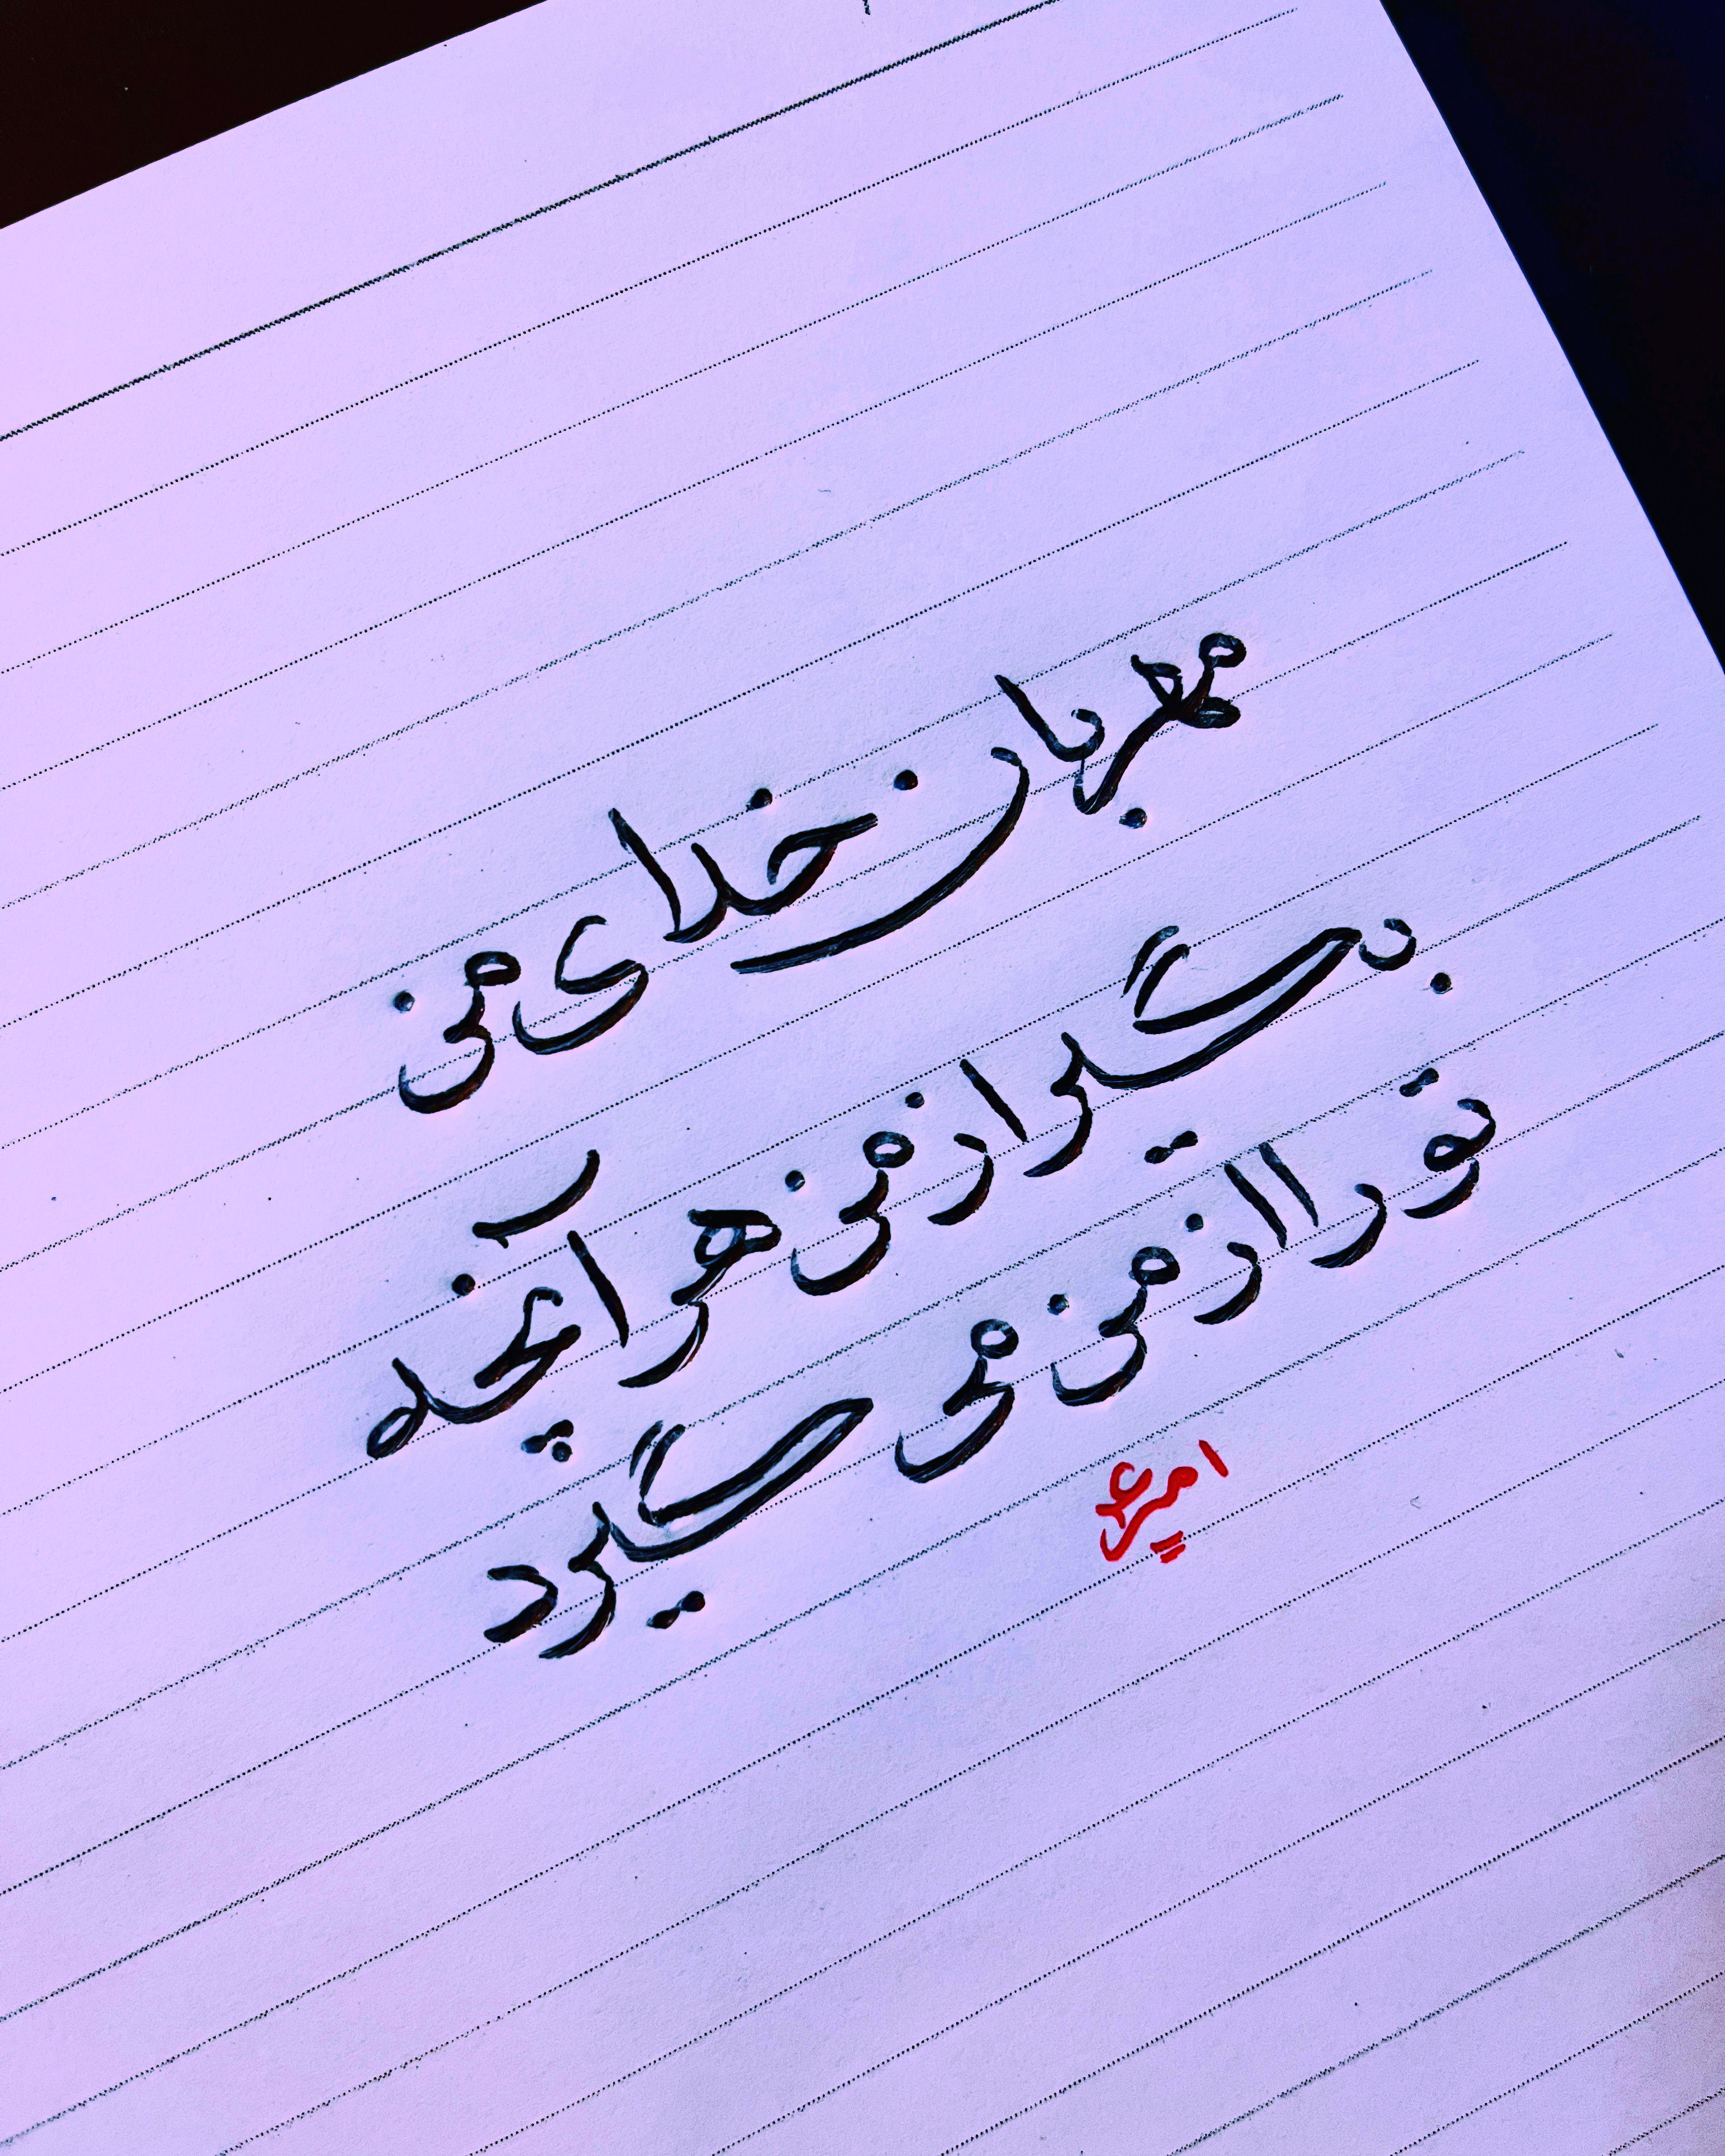 مهربان خدای من
بگیر از من هر آنچه
تو را از من می گیرد